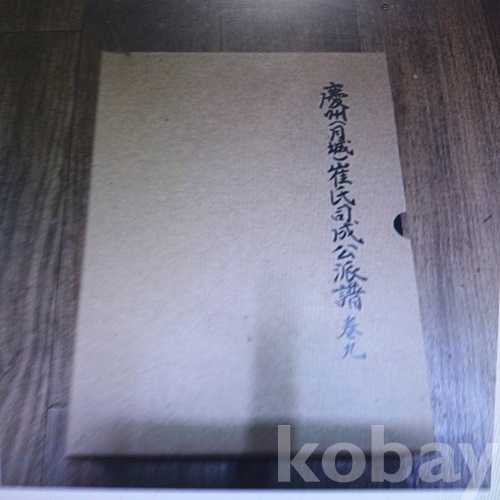 慶州(月城)崔氏司成公派譜 卷九
kobay